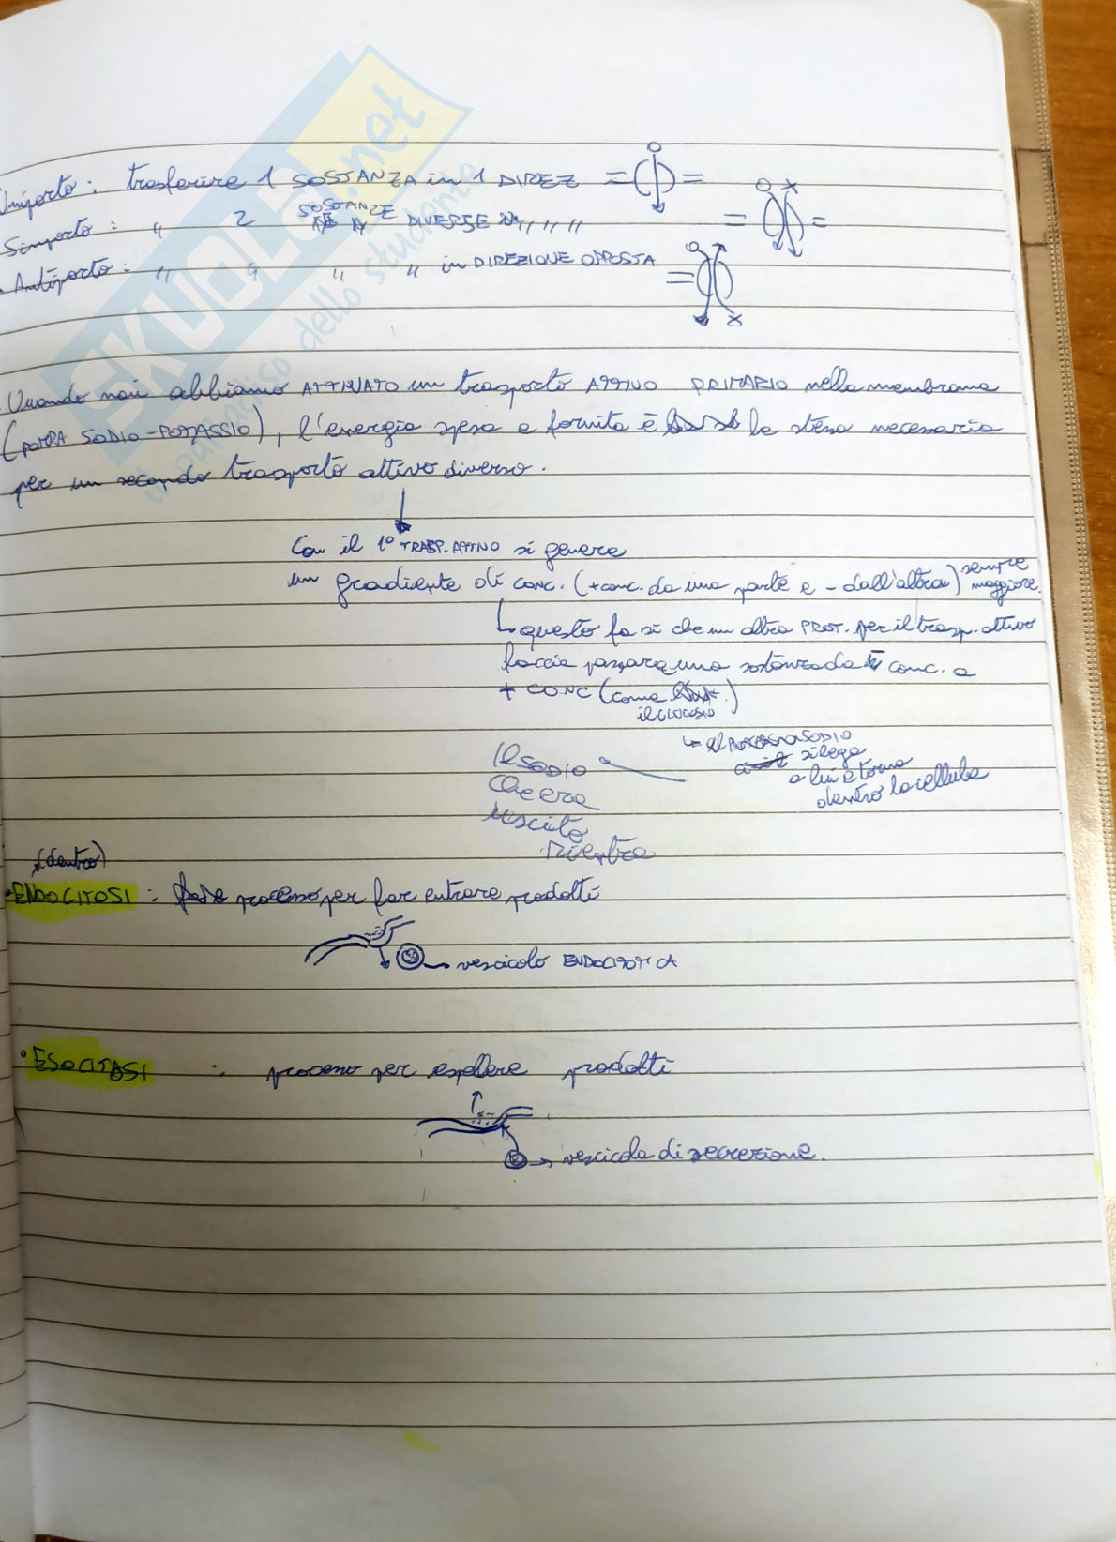 Uniporto: trasferire 1 SOSTANZA in 1 DIREZ
Simporto: " 2 SOSTANZE DIVERSE " " " "
Antiporto: " " " " in DIREZIONE OPPOSTA
Quando noi abbiamo ATTIVATO un trasporto ATTIVO PRIMARIO nella membrana
(POMPA SODIO-POTASSIO), l'energia spesa e fornita è la stessa necessaria
per un secondo trasporto attivo diverso.
Con il 1° TRASP. ATTIVO si genera
un gradiente di conc. (+ conc. da una parte e - dall'altra) sempre maggiore.
questo fa si che un altra PROT. per il trasp. attivo
faccia passare una sostanza da - conc. a
+ CONC (come il GLUCOSIO)
il SODIO
si lega
a lui e torna
dentro la cellula
Il SODIO
che era
uscito
rientra
(dentro)
• ENDOCITOSI : processo per far entrare prodotti
vescicola ENDOCITOTICA
• ESOCITOSI : processo per espellere prodotti
vescicola di secrezione.
SKUOLA.net
il paradiso dello studente